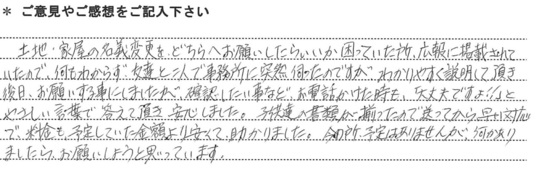 * ご意見やご感想をご記入下さい
土地・家屋の名義変更を、どちらへお願いしたらいいか困っていた所、広報に掲載されて
いたので、何もわからず友達と二人で事務所に突然伺ったのですが、わかりやすく説明して頂き
後日、お願いする事にしましたが、確認したい事など、お電話かけた時も、「大丈夫ですよ」と
やさしい言葉で答えて頂き、安心しました。子供達の書類が揃ったので送ってから、早い対応
で、料金も予定していた金額より安くて、助かりました。今の所予定はありませんが、何かあり
ましたら、お願いしようと思っています。